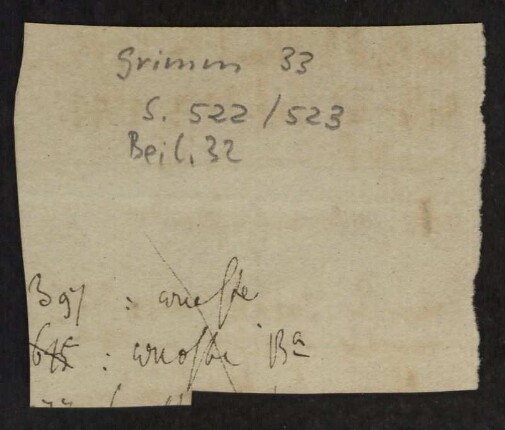 Grimm 33
S. 522/523
Beil. 32
397 : wueste
: wuoste Ba